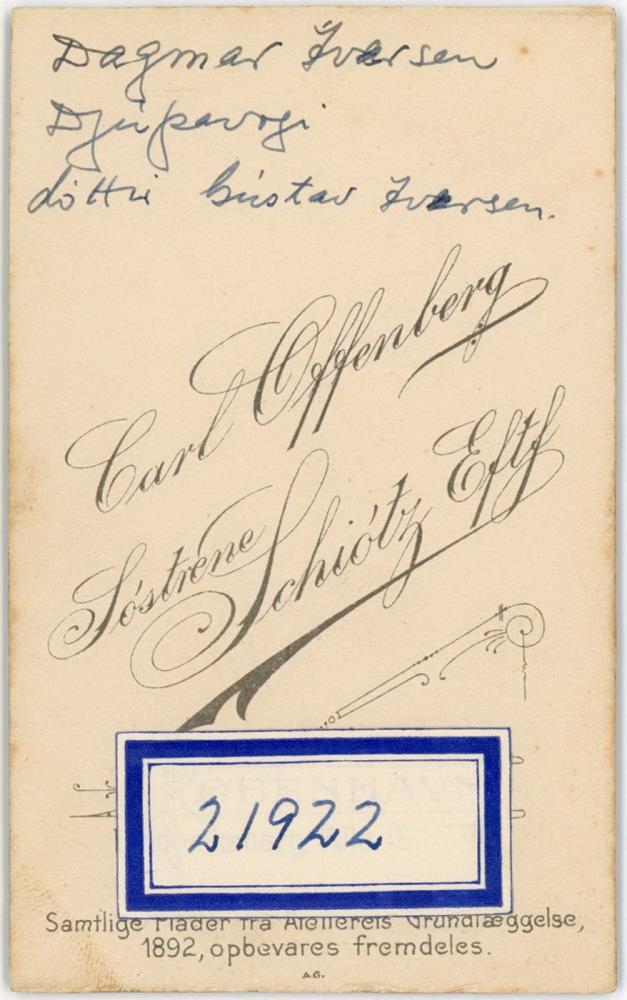 Dagmar Iversen
Djúpavogi
dóttir Gústav Iversen.
Carl Offenberg
Söstrene Schiötz Eftf
KØBENHAVN
21922
Samtlige Plader fra Atelierets Grundlæggelse,
1892, opbevares fremdeles.
A.G.